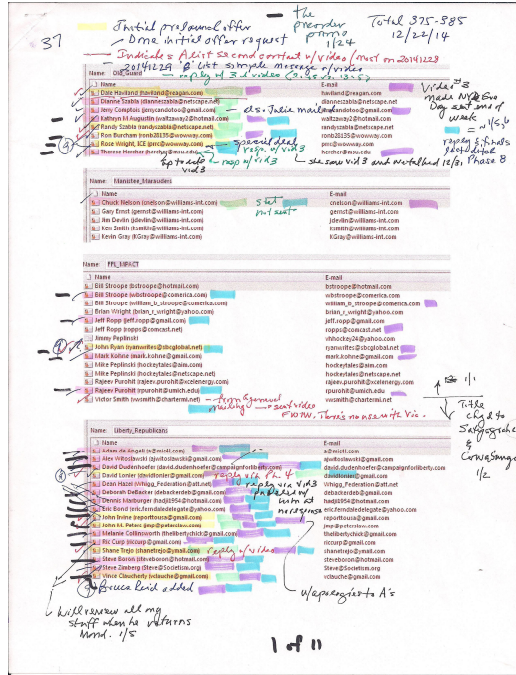 37
Initial prelaunch offer
the preorder promo 1/24
Total 375-385
12/22/14
- Dona initial offer request
Indicates A list second contact w/video/most on 20141228
- 20141229 B' list simple message w/video
Name: Old_Guard
reply of 3 d video
Name E-mail
Dale Haviland (haviland@reagan.com) haviland@reagan.com
Dianne Szabla (dianneszabla@netscape.net) dianneszabla@netscape.net
Jerry Comptois (jerrycandotoo@gmail.com) jerrycandotoo@gmail.com
Kathryn M Augustin (waltzaway2@hotmail.com) waltzaway2@hotmail.com
Randy Szabla (randyszabla@netscape.net) randyszabla@netscape.net
Ron Burcham (ronb28135@wowway.com) ronb28135@wowway.com
Rose Wright, ICE (prc@wowway.com) prc@wowway.com
special deal
resp w/vid3
Video #3 made NY Eve
Day sent end of week
Phase 8
Name: Manistee_Marauders
Name E-mail
Chuck Nelson (cnelson@williams-int.com) cnelson@williams-int.com
Stet not sent
Gary Ernst (gernst@williams-int.com) gernst@williams-int.com
Jim Devlin (jdevlin@williams-int.com) jdevlin@williams-int.com
Ken Smith (ksmith@williams-int.com) ksmith@williams-int.com
Kevin Gray (KGray@williams-int.com) KGray@williams-int.com
Name: FFL_IMPACT
Name E-mail
Bill Stroope (bstroope@hotmail.com) bstroope@hotmail.com
Bill Stroope (wbstroope@comerica.com) wbstroope@comerica.com
Bill Stroope (william_b_stroope@comerica.com) william_b_stroope@comerica.com
Brian Wright (brian_r_wright@yahoo.com) brian_r_wright@yahoo.com
Jeff Ropp (jeff.ropp@gmail.com) jeff.ropp@gmail.com
Jeff Ropp (ropps@comcast.net) ropps@comcast.net
Jimmy Peplinski vhhockey24@yahoo.com
John Ryan (ryanwrites@sbcglobal.net) ryanwrites@sbcglobal.net
Mark Kohne (mark.kohne@gmail.com) mark.kohne@gmail.com
Mike Peplinski (hockeytales@aim.com) hockeytales@aim.com
Mike Peplinski (hockeytales@netscape.net) hockeytales@netscape.net
Rajeev Purohit (rajeev.purohit@xcelenergy.com) rajeev.purohit@xcelenergy.com
Rajeev Purohit (rpurohit@umich.edu) rpurohit@umich.edu
Victor Smith (vwsmith@chartermi.net) vwsmith@chartermi.net
from General mailing sent video
FWIW. There's no use with Vic.
1/1
Title chgd to
&
1/2
Name: Liberty_Republicans
Name E-mail
Adam de Angeli (a@mioll.com) a@mioll.com
Alex Witoslawski (ajwitoslawski@gmail.com) ajwitoslawski@gmail.com
David Dudenhoefer (david.dudenhoefer@campaignforliberty.com) david.dudenhoefer@campaignforliberty.com
David Lonier (davidlonier@gmail.com) davidlonier@gmail.com
reply via Ph 4
Dean Hazel (Whigg_Federation@att.net) Whigg_Federation@att.net
reply via vid3
Deborah DeBacker (debackerdeb@gmail.com) debackerdeb@gmail.com
Dennis Marburger (hadji1954@hotmail.com) hadji1954@hotmail.com
Eric Bond (eric.ferndaledelegate@yahoo.com) eric.ferndaledelegate@yahoo.com
no response
John Irvine (reportitousa@gmail.com) reportitousa@gmail.com
John M. Peters (jmp@peterslaw.com) jmp@peterslaw.com
Melanie Collinsworth (thelibertychick@gmail.com) thelibertychick@gmail.com
Ric Curp (riccurp@gmail.com) riccurp@gmail.com
Shane Trejo (shanetrejo@ymail.com) shanetrejo@ymail.com
reply w/video
Steve Boron (steveboron@hotmail.com) steveboron@hotmail.com
Steve Zimberg (Steve@Societism.org) Steve@Societism.org
Vince Claucherly (vclauche@gmail.com) vclauche@gmail.com
Bruce Reid added
w/apologies to A's
Will review all my
stuff when he returns
Mond. 1/5
1 of 11